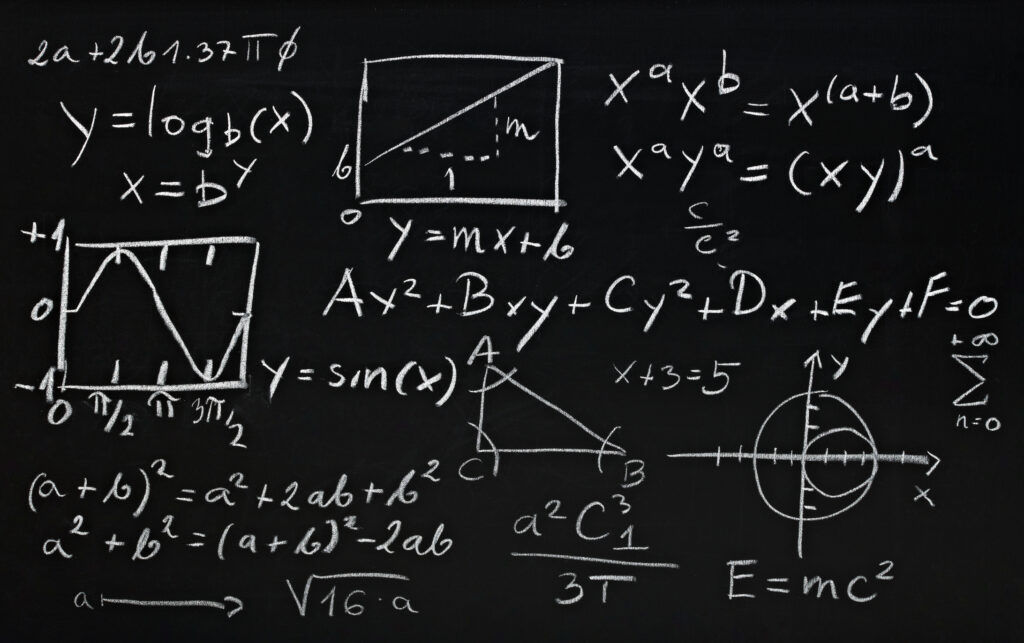 2a+2b1.37πϕ
y=log_b(x)
x=b^y
m
b
1
0
y=mx+b
x^a x^b = x^(a+b)
x^a y^a = (xy)^a
c/c²
Ax²+Bxy+Cy²+Dx+Ey+F=0
+1
0
-1
0 π/2 π 3π/2
y=sin(x)
A
C
B
x+3=5
y
x
+∞
∑
n=0
(a+b)²=a²+2ab+b²
a²+b²=(a+b)²-2ab
a → √16·a
a²C₁³
3T
E=mc²